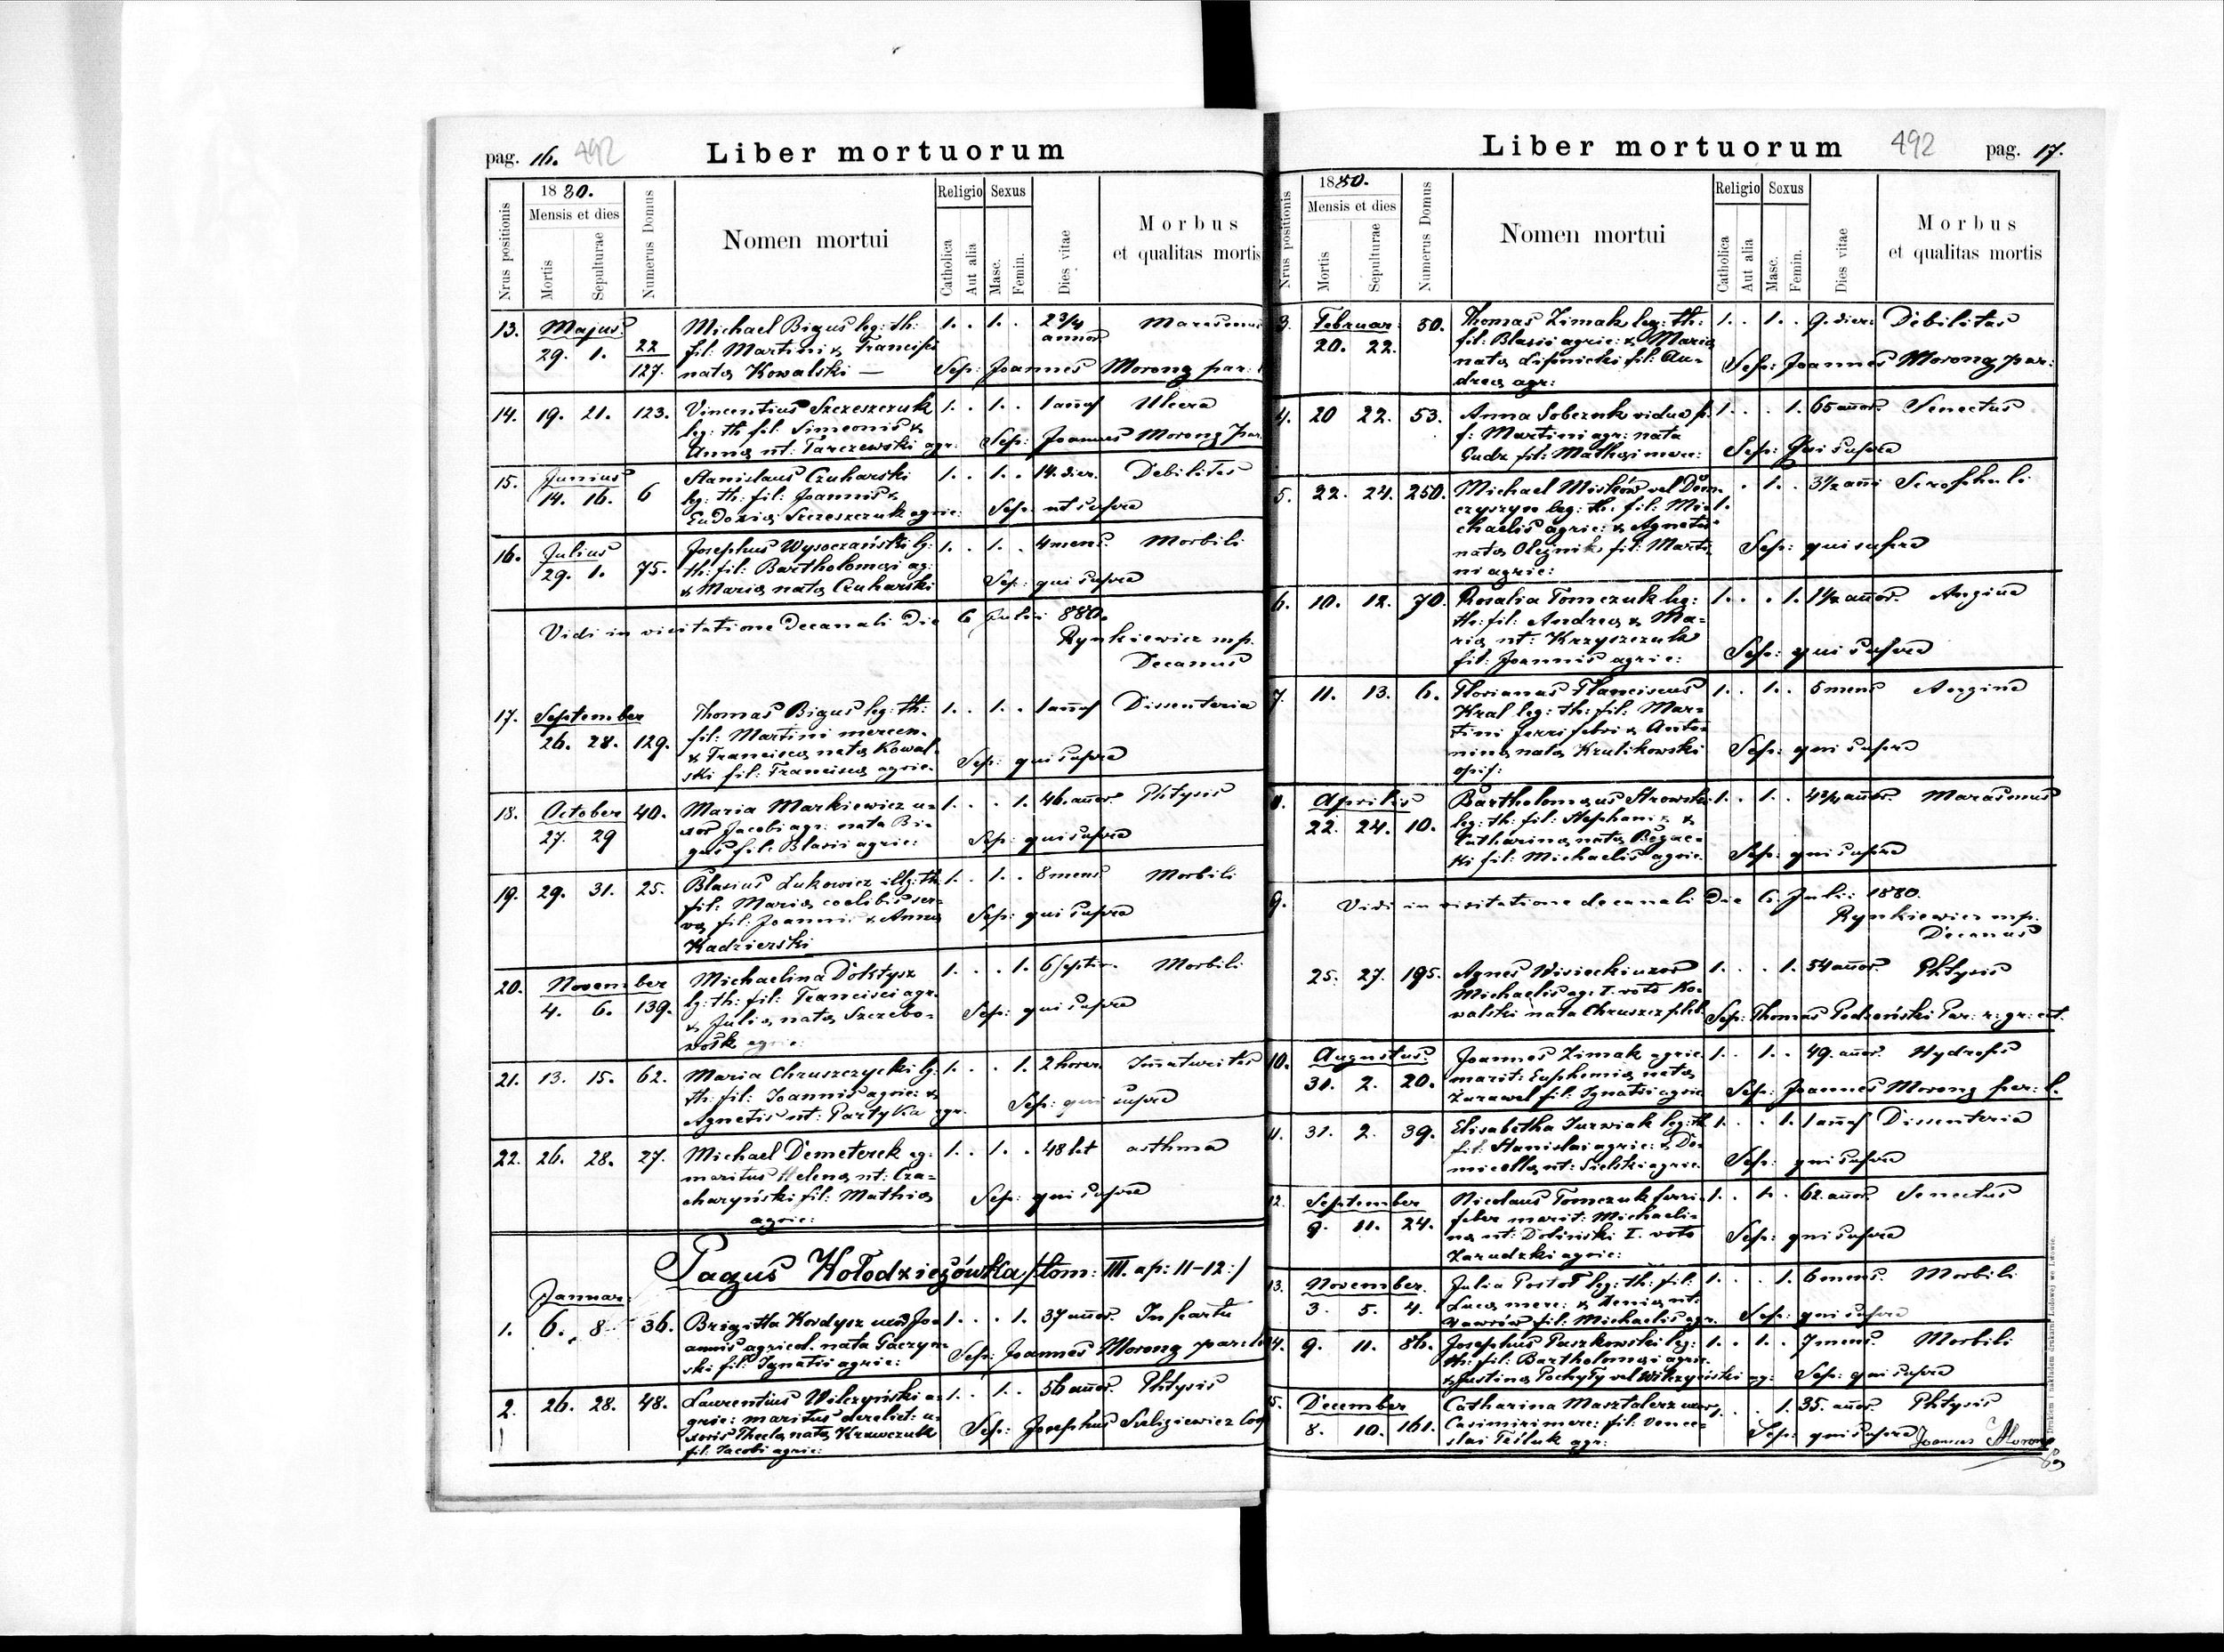 pag. 16. 492 Liber mortuorum
Nrus positionis
1880.
Mensis et dies
Mortis
Sepulturae
Numerus Domus
Nomen mortui
Religio
Catholica
Aut alia
Sexus
Masc.
Femin.
Dies vitae
Morbus
et qualitas mortis
13. Majus Michael Bigus leg: th: 1. . 1. . 2 3/4 Marasmus
29. 1. 22 fil: Martini & Francisci annor
127. nata Kowalski — Sep: Joannes Morong par:
14. 19. 21. 123. Vincentius Szczeszczuk 1. . 1. . 1 annus Ulcera
leg: th fil: Simeonis &
Anna nt: Tarczewski agr: Sep: Joannes Morong par.
15. Junius Stanislaus Czuharski 1. . 1. . 14. dier. Debilitas
14. 16. 6 leg: th: fil: Joannis &
Eudoxia Szczeszczuk agric: Sep: ut supra
16. Julius Josephus Wysoczański lg: 1. . 1. . 4 mens. Morbili
29. 1. 75. th: fil: Bartholomæi ag:
& Maria nata Czuharski Sep: qui supra
Vidi in visitatione decanali die 6 Julii 880.
Rynkiewicz mp.
Decanus
17. September Thomas Bigus leg: th: 1. . 1. . 1 annus Dissenteria
26. 28. 129. fil: Martini mercen.
& Francisca nata Kowal-
ski fil: Francisca agric. Sep: qui supra
18. October 40. Maria Markiewicz u= 1. . . 1. 46. annor. Phtysis
27. 29 xor Jacobi agr: nata Bi-
gus fil: Blasii agric: Sep: qui supra
19. 29. 31. 25. Blasius Lukowicz illg: th. 1. . 1. . 8 mens. Morbili
fil: Maria coelibis ser-
va fil: Joannis & Anna Sep: qui supra
Kadzierski
20. November Michaelina Doktysz 1. . . 1. 6 septim. Morbili
4. 6. 139. lg: th: fil: Francisci agr.
& Julia nata Szczebo- Sep: qui supra
21. 13. 15. 62. Maria Chruszczycki lg: 1. . . 1. 2 horar. Imaturitas
th: fil: Joannis agric: &
Agnetis nt: Partyka agr. Sep: qui supra
22. 26. 28. 27. Michael Demeterek ag: 1. . 1. . 48 let asthma
maritus Helena nt: Cza-
charyński fil: Mathia Sep: qui supra
agric:
Pagus Kołodziejówka /tom: III. ap: 11-12:/
Januar:
1. 6. 8. 36. Brigitta Kordysz uxor Joa 1. . . 1. 37 annor. In partu
annis agricol. nata Gaczyn-
ski fil: Ignatii agric: Sep: Joannes Morong par:
2. 26. 28. 48. Laurentius Wilczyński a= 1. . 1. . 56 annor. Phtysis
gric: maritus derelict: u=
xoris Thecla nata Krawczuk Sep: Josephus Szeligiewicz Coop
fil: Jacobi agric:
Liber mortuorum 492 pag. 17.
Nrus positionis
1880.
Mensis et dies
Mortis
Sepulturae
Numerus Domus
Nomen mortui
Religio
Catholica
Aut alia
Sexus
Masc.
Femin.
Dies vitae
Morbus
et qualitas mortis
3. Februar: 50. Thomas Zimak leg: th: 1. . 1. . 9. dier: Debilitas
20. 22. fil: Blasii agric: & Maria
nata Lipnicki fil: An- Sep: Joannes Morong par:
drea agr:
4. 20 22. 53. Anna Sobczuk vidua p. 1. . . 1. 65 annor. Senectus
f: Martini agr: nata
Gudz fil: Mathæi merc: Sep: Qui supra
5. 22. 24. 250. Michael Misków vel Dem- . 1. . 3 1/2 anni Scrophuli
czyszyn leg: th: fil: Mi- 1.
chaelis agric: & Agnetis
nata Olejnik fil: Marti- Sep: qui supra
ni agric:
6. 10. 12. 70. Rosalia Tomczuk leg: 1. . . 1. 1 1/2 annor. Angina
th: fil: Andrea & Ma=
ria nt: Krzyszczuk
fil: Joannis agric: Sep: qui supra
7. 11. 13. 6. Florianus Franciscus 1. . 1. . 5 mens Angina
Kral leg: th: fil: Mar=
tini ferri fabri & Anto-
nina nata Krulikowski Sep: qui supra
opif:
8. Aprilis Bartholomæus Strowski 1. . 1. . annor. Marasmus
22. 24. 10. leg: th: fil: Stephani &
Catharina nata Begac-
ki fil: Michaelis agric. Sep: qui supra
9. Vidi in visitatione decanali die 6. Julii 1880.
Rynkiewicz mp.
Decanus
25. 27. 195. Agnes Wisiecki uxor 1. . . 1. 54 annor. Phtysis
Michaelis ag: I. voto Ko-
walski nata Chruszcz Sep: Thomas Podzoński Par: r: gr: cat.
10. Augustus Joannes Zimak agric. 1. . 1. . 49. annor. Hydrops
31. 2. 20. marit: Euphemia nata
Zurawel fil: Ignatii agric. Sep: Joannes Morong par: l.
11. 31. 2. 39. Elisabetha Surwiak leg: th 1. . . 1. 1 annus Dissenteria
fil: Stanislai agric: & Do-
micella nt: Szelski agric. Sep: qui supra
12. September Nicolaus Tomczuk ferri- 1. . 1. . 62. annor. Senectus
9. 11. 24. faber marit: Michaeli-
na nt: Doliński I. voto Sep: qui supra
Zarudzki agric:
13. November Julia Postoł leg: th: fil: 1. . . 1. 6 mens. Morbili
3. 5. 4. Luca merc: & Xenia nt:
Wawrów fil: Michaelis agr. Sep: qui supra
14. 9. 11. 86. Josephus Paszkowski leg: 1. . 1. . 7 mens. Morbili
th: fil: Bartholomæi agric.
& Justina Pochyły vel Wilczyński ag: Sep: qui supra
15. December Catharina Masztalerz uxor 1. . . 1. 35. annor. Phtysis
8. 10. 161. Casimiri merc: fil: Vence-
slai Teśluk agr: Sep: qui supra Joannes Morong
Drukiem i nakładem drukarni Ludowej we Lwowie.